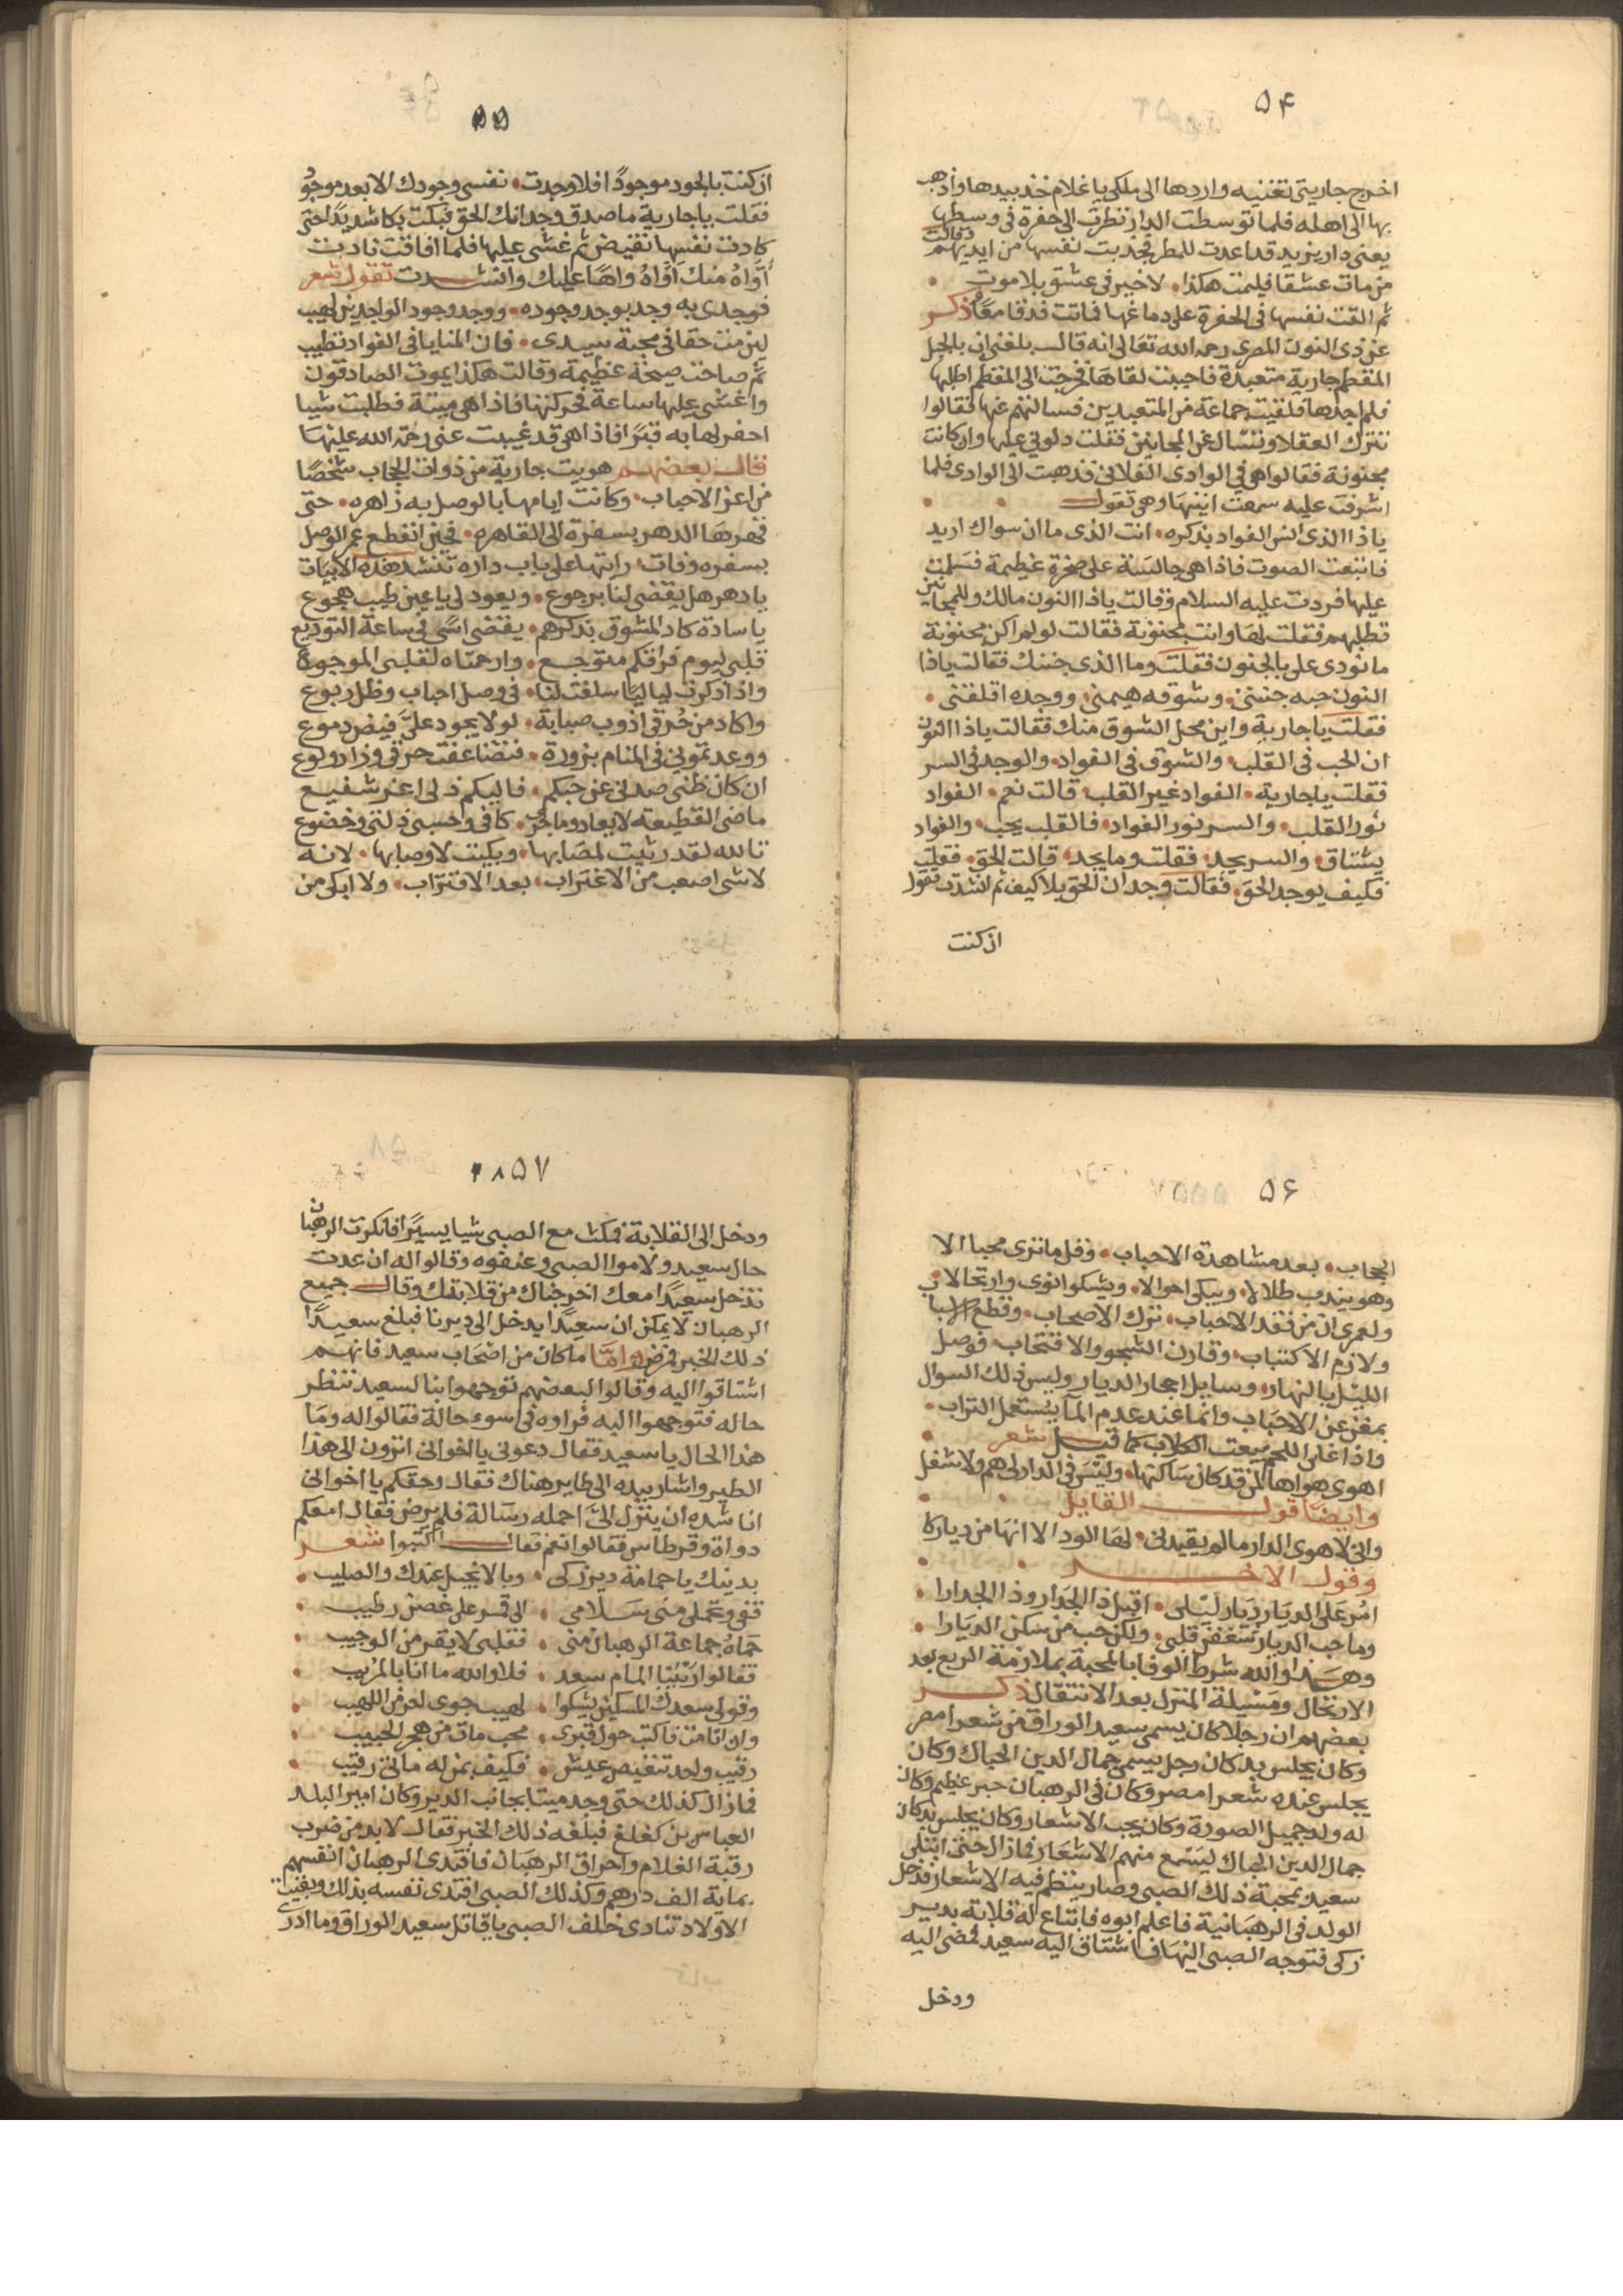 ۵۴
اخرج جاريتى تغنيه واردها الى ملكى يا غلام خذ بيدها واذهب
بها الى اهله فلما توسطت الدار نظرت الى حفرة فى وسطها
يعنى دار يزيد قد اعدت للمطر فجذبت نفسها من ايديهم وقالت
من مات عشقا فليمت هكذا، لا خير فى عشق بلا موت
ثم القت نفسها فى الحفرة على دماغها فماتت فدفنا معًا ذكر
عن ذى النون المصرى رحمه الله تعالى انه قال بلغنى ان بالجبل
المقطم جارية متعبدة فاحببت لقاها فخرجت الى المقطم اطلبها
فلم اجدها فلقيت جماعة من المتعبدين فسالتهم عنها فقالوا
تترك العقلا وتسال عن المجانين فقلت دلونى عليها وان كانت
مجنونة فقالوا هى فى الوادى الفلانى فذهبت الى الوادى فلما
اشرفت عليه سمعت انينها وهى تقول
يا ذا الذى انس الفواد بذكره، انت الذى ما ان سواك اريد
فاتبعت الصوت فاذا هى جالسة على صخرة عظيمة فسلمت
عليها فردت عليه السلام وقالت يا ذا النون مالك وللمجانين
تطلبهم فقلت لها وانت مجنونة فقالت لو لم اكن مجنونة
ما نودى على بالجنون فقلت وما الذى جننك فقالت يا ذا
النون حبه جننى، وشوقه هيمنى، ووجده اقلقنى
فقلت يا جارية واين محل الشوق منك فقالت يا ذا النون
ان الحب فى القلب، والشوق فى الفواد، والوجد فى السر
فقلت يا جارية، الفواد غير القلب، قالت نعم، الفواد
نور القلب، والسر نور الفواد، فالقلب يحب، والفواد
يشتاق، والسر يجد، فقلت وما يجد، قالت الحق، فقلت
فكيف يوجد الحق، فقالت وجدان الحق بلا كيف ثم انشدت تقول
ان كنت
۵۵
ان كنت بالجود موجودًا فلا وجدت، نفسى وجودك الا بعد موجود
فقلت يا جارية ما صدق وجدانك الحق فبكت بكا شديدًا حتى
كادت نفسها تفيض ثم غشى عليها فلما افاقت نادت
أوّاهُ منك أوّاهُ واهًا عليك وانشدت تقول شعر
فوجدى به وجد بوجد وجوده، ووجد وجود الواجدين لهيب
لئن مت حقا فى محبة سيدى، فان المنايا فى الفواد تطيب
ثم صاحت صيحة عظيمة وقالت هكذا يموت الصادقون
واغشى عليها ساعة فحركتها فاذا هى ميتة فطلبت شيا
احفر لها به قبرًا فاذا هى قد غيبت عنى رحمة الله عليها
قال بعضهم هويت جارية من ذوات الحجاب شخصًا
من اعز الاحباب، وكانت ايامها بالوصل به زاهره، حتى
قهرها الدهر بسفرة الى القاهره، فحين انقطع عمر الوصل
بسفره وفات، رايتها على باب داره تنشد هذه الابيات
يا دهر هل يقضى لنا برجوع، ويعود لى يا عين طيب هجوع
يا سادة كاد المشوق بذكرهم، يقضى اسًى فى ساعة التوديع
قلبى ليوم فراقكم متوجع، وارحمتاه لقلبى الموجوع
واذا ذكرت لياليًا سلفت لنا، فى وصل احباب وظل ربوع
واكاد من حُرقى اذوب صبابة، لولا يجود علىَّ فيض دموع
ووعدتمونى فى المنام بزورة، فتضاعفت حرقى وزاد ولوع
ان كان ظنى صدنى عن حبكم، فاليكم ذلى اعز شفيع
ماضى القطيعه لا يعاد وما جرى، كافى وحسبى ذلتى وخضوع
تالله لقد رثيت لمصابها، وبكيت لاوصابها، لانه
لا شى اصعب من الاغتراب، بعد الاقتراب، ولا ابكى من
۵۶
الحجاب، بعد مشاهدة الاحباب، وقل ما ترى محبا الا
وهو يندب طلالا، ويبكى احوالا، ويشكوا نوى وارتحالا،
ولعمرى ان من فقد الاحباب، ترك الاصحاب، وقطع
ولازم الاكتئاب، وقارن الشجو والانتحاب، فوصل
الليل بالنهار، وسايل احجار الديار وليس ذلك السوال
بمغن عن الاحباب وانما عند عدم المآ يستعمل التراب،
واذا غلى اللحم بيعت الكلاب كما قيل شعر
اهوى هواها لمن قد كان ساكنها، وليس فى الدار لى هم ولا شغل
وايضا قول القايل
وانى لا هوى الدار ما لم يقيدنى، لها الود الا انها من دياركا
وقول الاخر
امُر على الديار ديار ليلى، اقبل ذا الجدار وذا الجدارا
وما حب الديار شغفن قلبى، ولكن حب من سكن الديارا
وهذا والله شرط الوفا بالمحبة بملازمة الربع بعد
الارتحال ومسيلة المنزل بعد الانتقال ذكر
بعضهم ان رجلا كان يسمى سعيد الوراق من شعرا مصر
وكان يجلس بدكان رجل يسمى جمال الدين الحباك وكان
يجلس عنده شعرا مصر وكان فى الرهبان حبر عظيم وكان
له ولد جميل الصورة وكان يحب الاشعار وكان يجلس بدكان
جمال الدين الحباك ليسمع منهم الاشعار فما زال حتى ابتلى
سعيد بمحبة ذلك الصبى وصار ينظم فيه الاشعار فدخل
الولد فى الرهبانية فاعلم ابوه فابتاع له قلاية بدير
زكى فتوجه الصبى اليها فاشتاق اليه سعيد فمضى اليه
ودخل
۵۷
ودخل الى القلاية فمكث مع الصبى شيا يسيرًا فانكرت الرهبان
حال سعيد ولاموا الصبى وعنفوه وقالوا له ان عدت
تدخل سعيدًا معك اخرجناك من قلايتك وقال جميع
الرهبان لا يمكن ان سعيدًا يدخل الى ديرنا فبلغ سعيدًا
ذلك الخبر فمرض وامّا ما كان من اصحاب سعيد فانهم
اشتاقوا اليه وقالوا لبعضهم توجهوا بنا لسعيد ننظر
حاله فتوجهوا اليه فراوه فى اسوء حالة فقالوا له وما
هذا الحال يا سعيد فقال دعونى يا اخوانى اترون الى هذا
الطير واشار بيده الى طاير هناك فقال وحقكم يا اخوانى
انا شده ان ينزل الىّ احمله رسالة فلم يرض فقال امعكم
دواة وقرطاس فقالوا نعم فقال اكتبوا شعر
بدينك يا حمامة دير زكى، وبالانجيل عندك والصليب
قفى وتحملى منى سلامى، الى قمر على غصن رطيب
حماهُ جماعة الرهبان منى، فقلبى لا يقر من الوجيب
فقالوا رَيبنا المام سعد، فلا والله ما انا بالمُريب
وقولى سعدك المسكين يشكوا، لهيب جوى احر من اللهيب
وان انا مت فاكتب حول قبرى، محب مات من هجر الحبيب
رقيب واحد تنغيص عيش، فكيف بمن له ماتى رقيب
فما زال كذلك حتى وجد ميتا بجانب الدير وكان امير البلد
العباس بن كغلغ فبلغه ذلك الخبر فقال لا بد من ضرب
رقبة الغلام واحراق الرهبان فافتدى الرهبان انفسهم
بماية الف درهم وكذلك الصبى افتدى نفسه بذلك وبقيت
الاولاد تنادى خلف الصبى يا قاتل سعيد الوراق وما ادرى